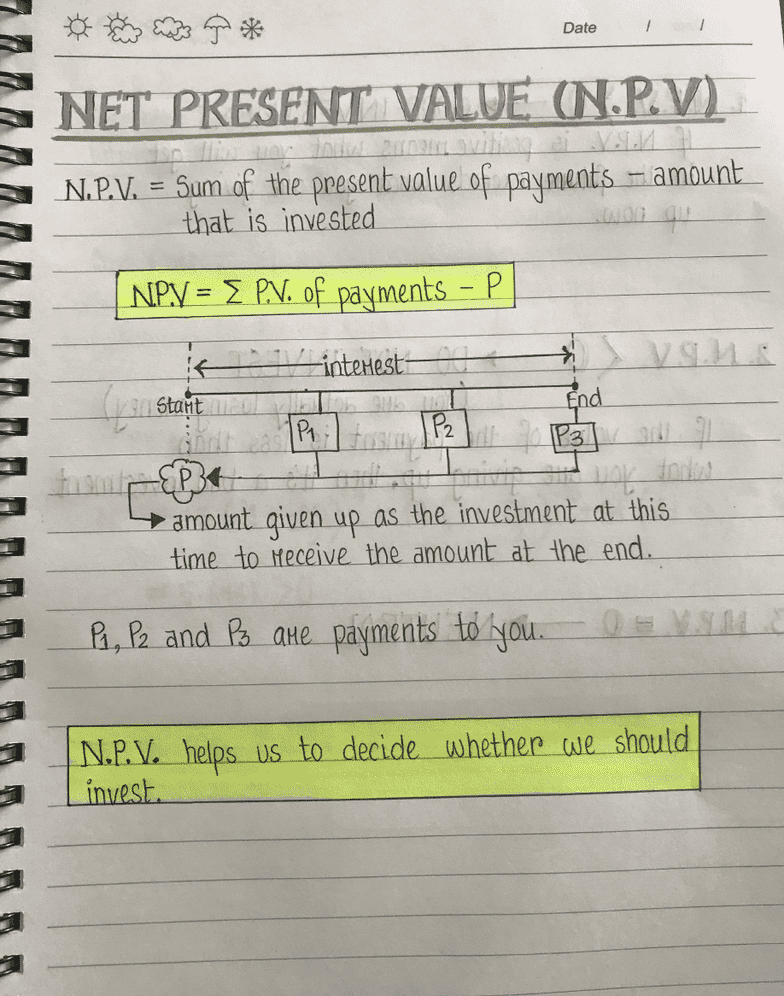 Date / /
NET PRESENT VALUE (N.P.V)
N.P.V. = Sum of the present value of payments – amount
that is invested
N.P.V = Σ P.V. of payments – P
interest
Start
End
P1
P2
P3
P
amount given up as the investment at this
time to receive the amount at the end.
P1, P2 and P3 are payments to you.
N.P.V. helps us to decide whether we should
invest.